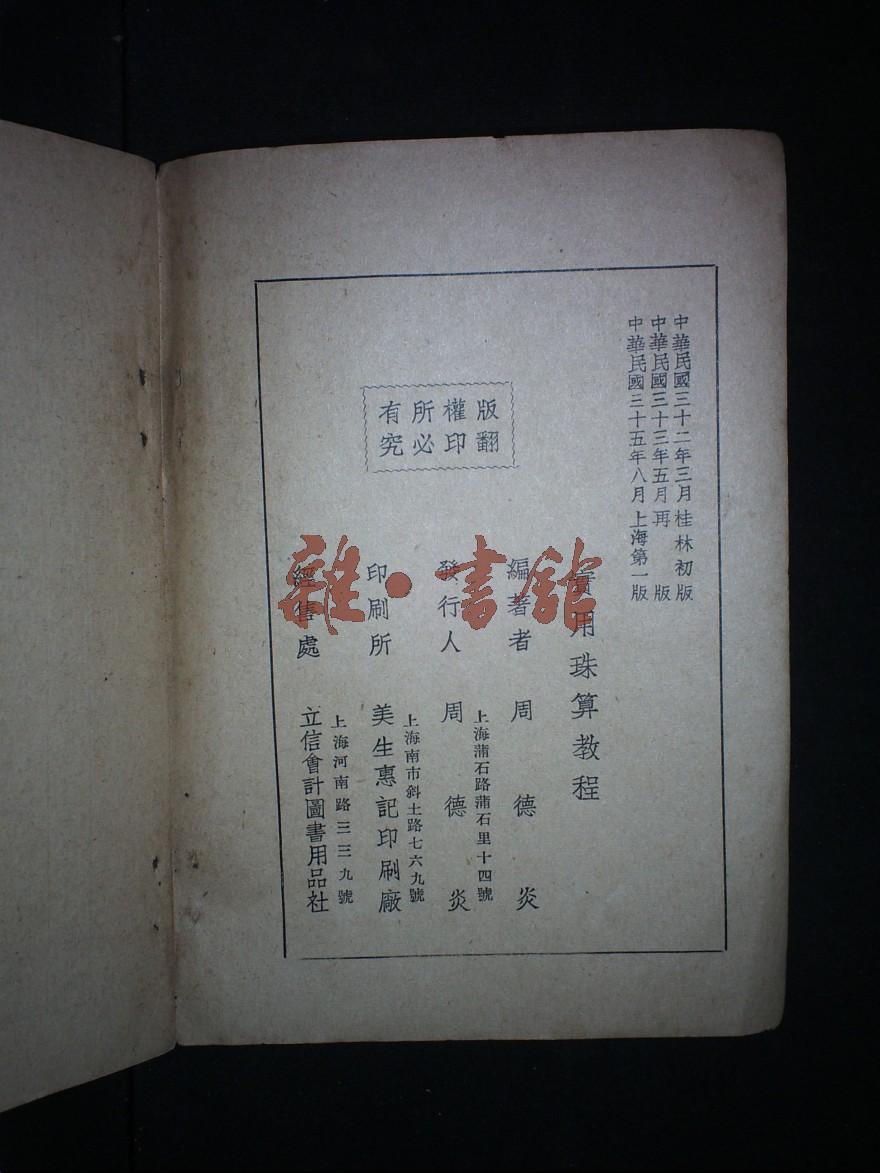 中華民國三十二年三月桂林初版
中華民國三十三年五月再版
中華民國三十五年八月上海第一版
實用珠算教程
編著者 周德炎
發行人 周德炎
上海蒲石路蒲石里十四號
印刷所 美生惠記印刷廠
上海南市斜土路七六九號
經售處 立信會計圖書用品社
上海河南路三三九號
版權所有
翻印必究
雜·書館